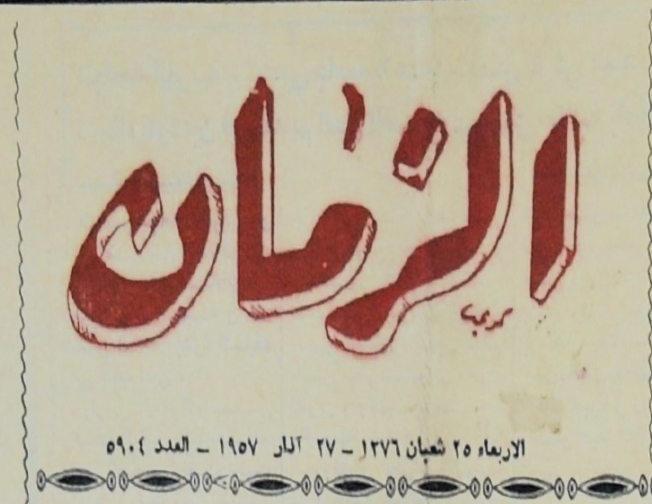 الزمان
الاربعاء ٢٥ شعبان ١٣٧٦ – ٢٧ آذار ١٩٥٧ – العدد ٥٩٠٤